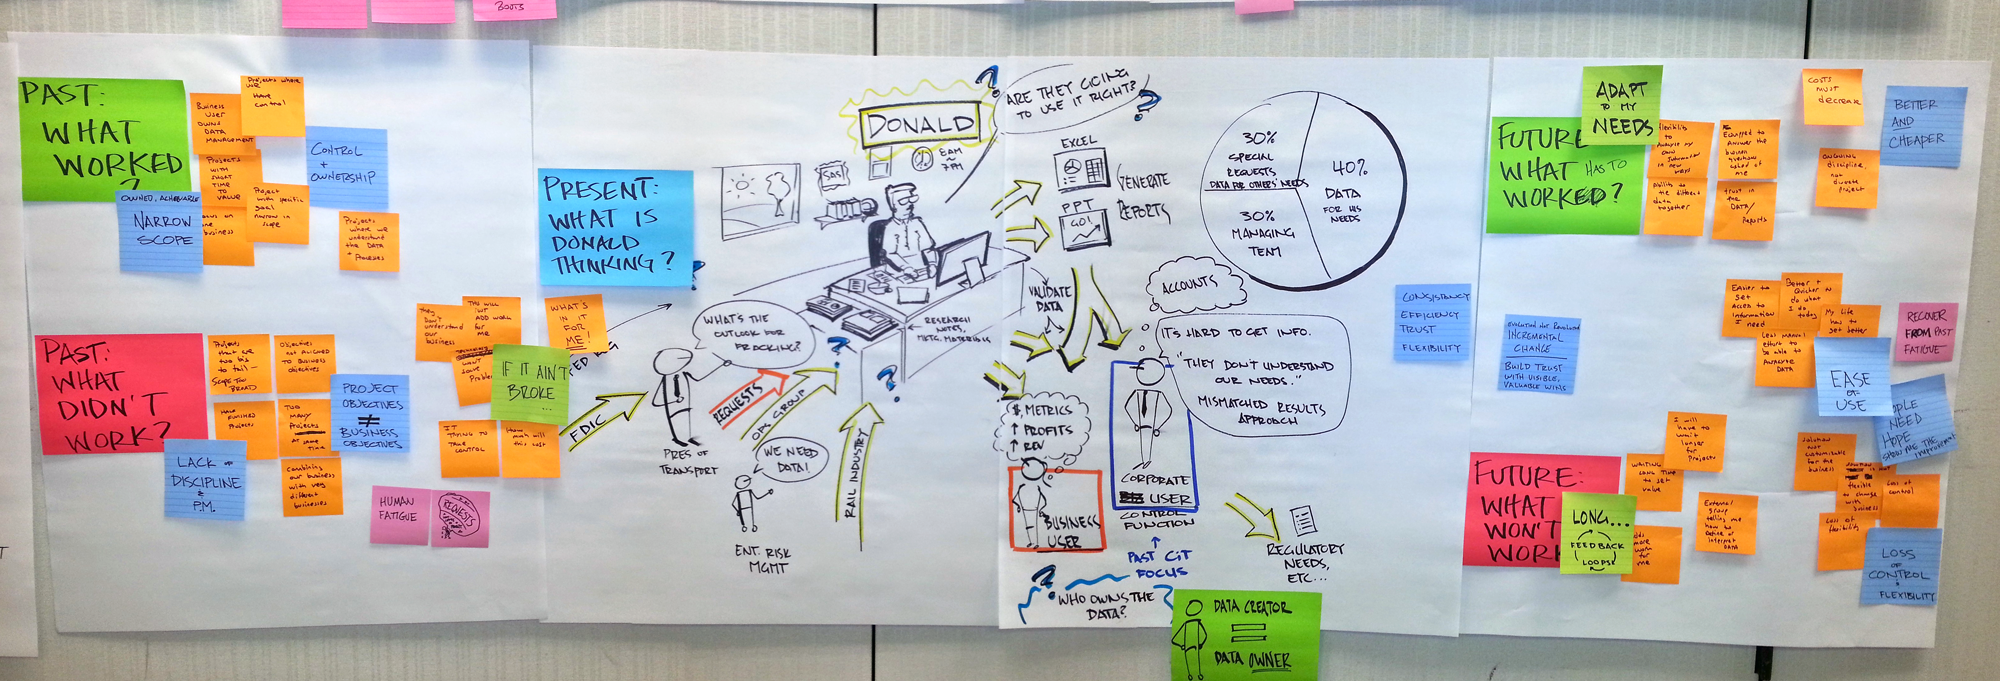 BOOTS
PAST:
WHAT
WORKED
?
Projects where
we
Have
control
Business
User
owns
DATA
MANAGEMENT
CONTROL
+
OWNERSHIP
Projects
with
short
time to
value
Project
with specific
goal
narrow in
scope
OWNED, ACHIEVABLE
NARROW
SCOPE
focus on
one
business
Projects
where we
understand
the DATA
+ Processes
PAST:
WHAT
DIDN'T
WORK?
Projects
that are
too big
to fail -
Scope Too
Broad
Objectives
not aligned
to Business
objectives
They
Don't
understand
our
business
This will
just
add work
for
me
want
solve
Problem
IF IT AIN'T
BROKE
...
PROJECT
OBJECTIVES
≠
BUSINESS
OBJECTIVES
Half
Finished
Projects
Too
many
Projects
at same
time
IT
TRYING TO
TAKE
CONTROL
How
much will
this cost
LACK OF
DISCIPLINE
&
P.M.
Combining
our business
with very
different
businesses
HUMAN
FATIGUE
REQUESTS
PRESENT:
WHAT IS
DONALD
THINKING?
WHAT'S
IN IT
FOR
ME!
DONALD
SAS
8AM
~
7PM
?
ARE THEY GOING
TO USE IT RIGHT?
?
EXCEL
PPT
GO!
GENERATE
REPORTS
30%
SPECIAL
REQUESTS
DATA FOR OTHERS' NEEDS
40%
DATA
FOR HIS
NEEDS
30%
MANAGING
TEAM
?
WHAT'S THE
OUTLOOK FOR
FRACKING?
RESEARCH
NOTES,
MKTG. MATERIALS
?
?
VALIDATE
DATA
FDIC
REQUESTS
OPS GROUP
RAIL INDUSTRY
PRES OF
TRANSPORT
WE NEED
DATA!
ENT. RISK
MGMT
ACCOUNTS
IT'S HARD TO GET INFO.
"THEY DON'T UNDERSTAND
OUR NEEDS."
MISMATCHED RESULTS
APPROACH
$, METRICS
↑ PROFITS
↑ REV
BUSINESS
USER
CORPORATE
USER
CONTROL
FUNCTION
↑
PAST CIT
FOCUS
REGULATORY
NEEDS,
ETC...
?
WHO OWNS THE
DATA?
DATA CREATOR
=
DATA OWNER
CONSISTANCY
EFFICIENCY
TRUST
FLEXIBILITY
ADAPT
TO MY
NEEDS
FUTURE
WHAT HAS TO
WORKED?
Flexibility
to
Analyze my
own
Information
in new
ways
Equipped to
Answer the
business
questions
asked of
me
Ability to tie
different
data
together
trust in
the
DATA/
Reports
COSTS
must
decrease
BETTER
AND
CHEAPER
ONGOING
discipline,
not
discrete
project
EVOLUTION NOT REVOLUTION
INCREMENTAL
CHANGE
BUILD TRUST
WITH VISIBLE,
VALUABLE WINS
Easier to
get
Access to
Information
I need
Better +
Quicker to
do what
I do
today
My Life
has to
get better
Less manual
effort to
be able to
Analyze
DATA
RECOVER
FROM PAST
FATIGUE
EASE
OF
USE
PEOPLE
NEED
HOPE
SHOW ME THE
improvement
FUTURE:
WHAT
WON'T
WORK
I will
have to
wait
longer
for
Projects
WAITING
LONG TIME
TO get
value
LONG...
FEEDBACK
LOOPS
Adds
more
work for
me
External
group
telling me
how to
define or
interpret
DATA
Solution
not
customizable
for the
business
is not
flexible
to change
with
business
Loss of
control
Loss of
flexibility
LOSS
OF
CONTROL
+
FLEXIBILITY